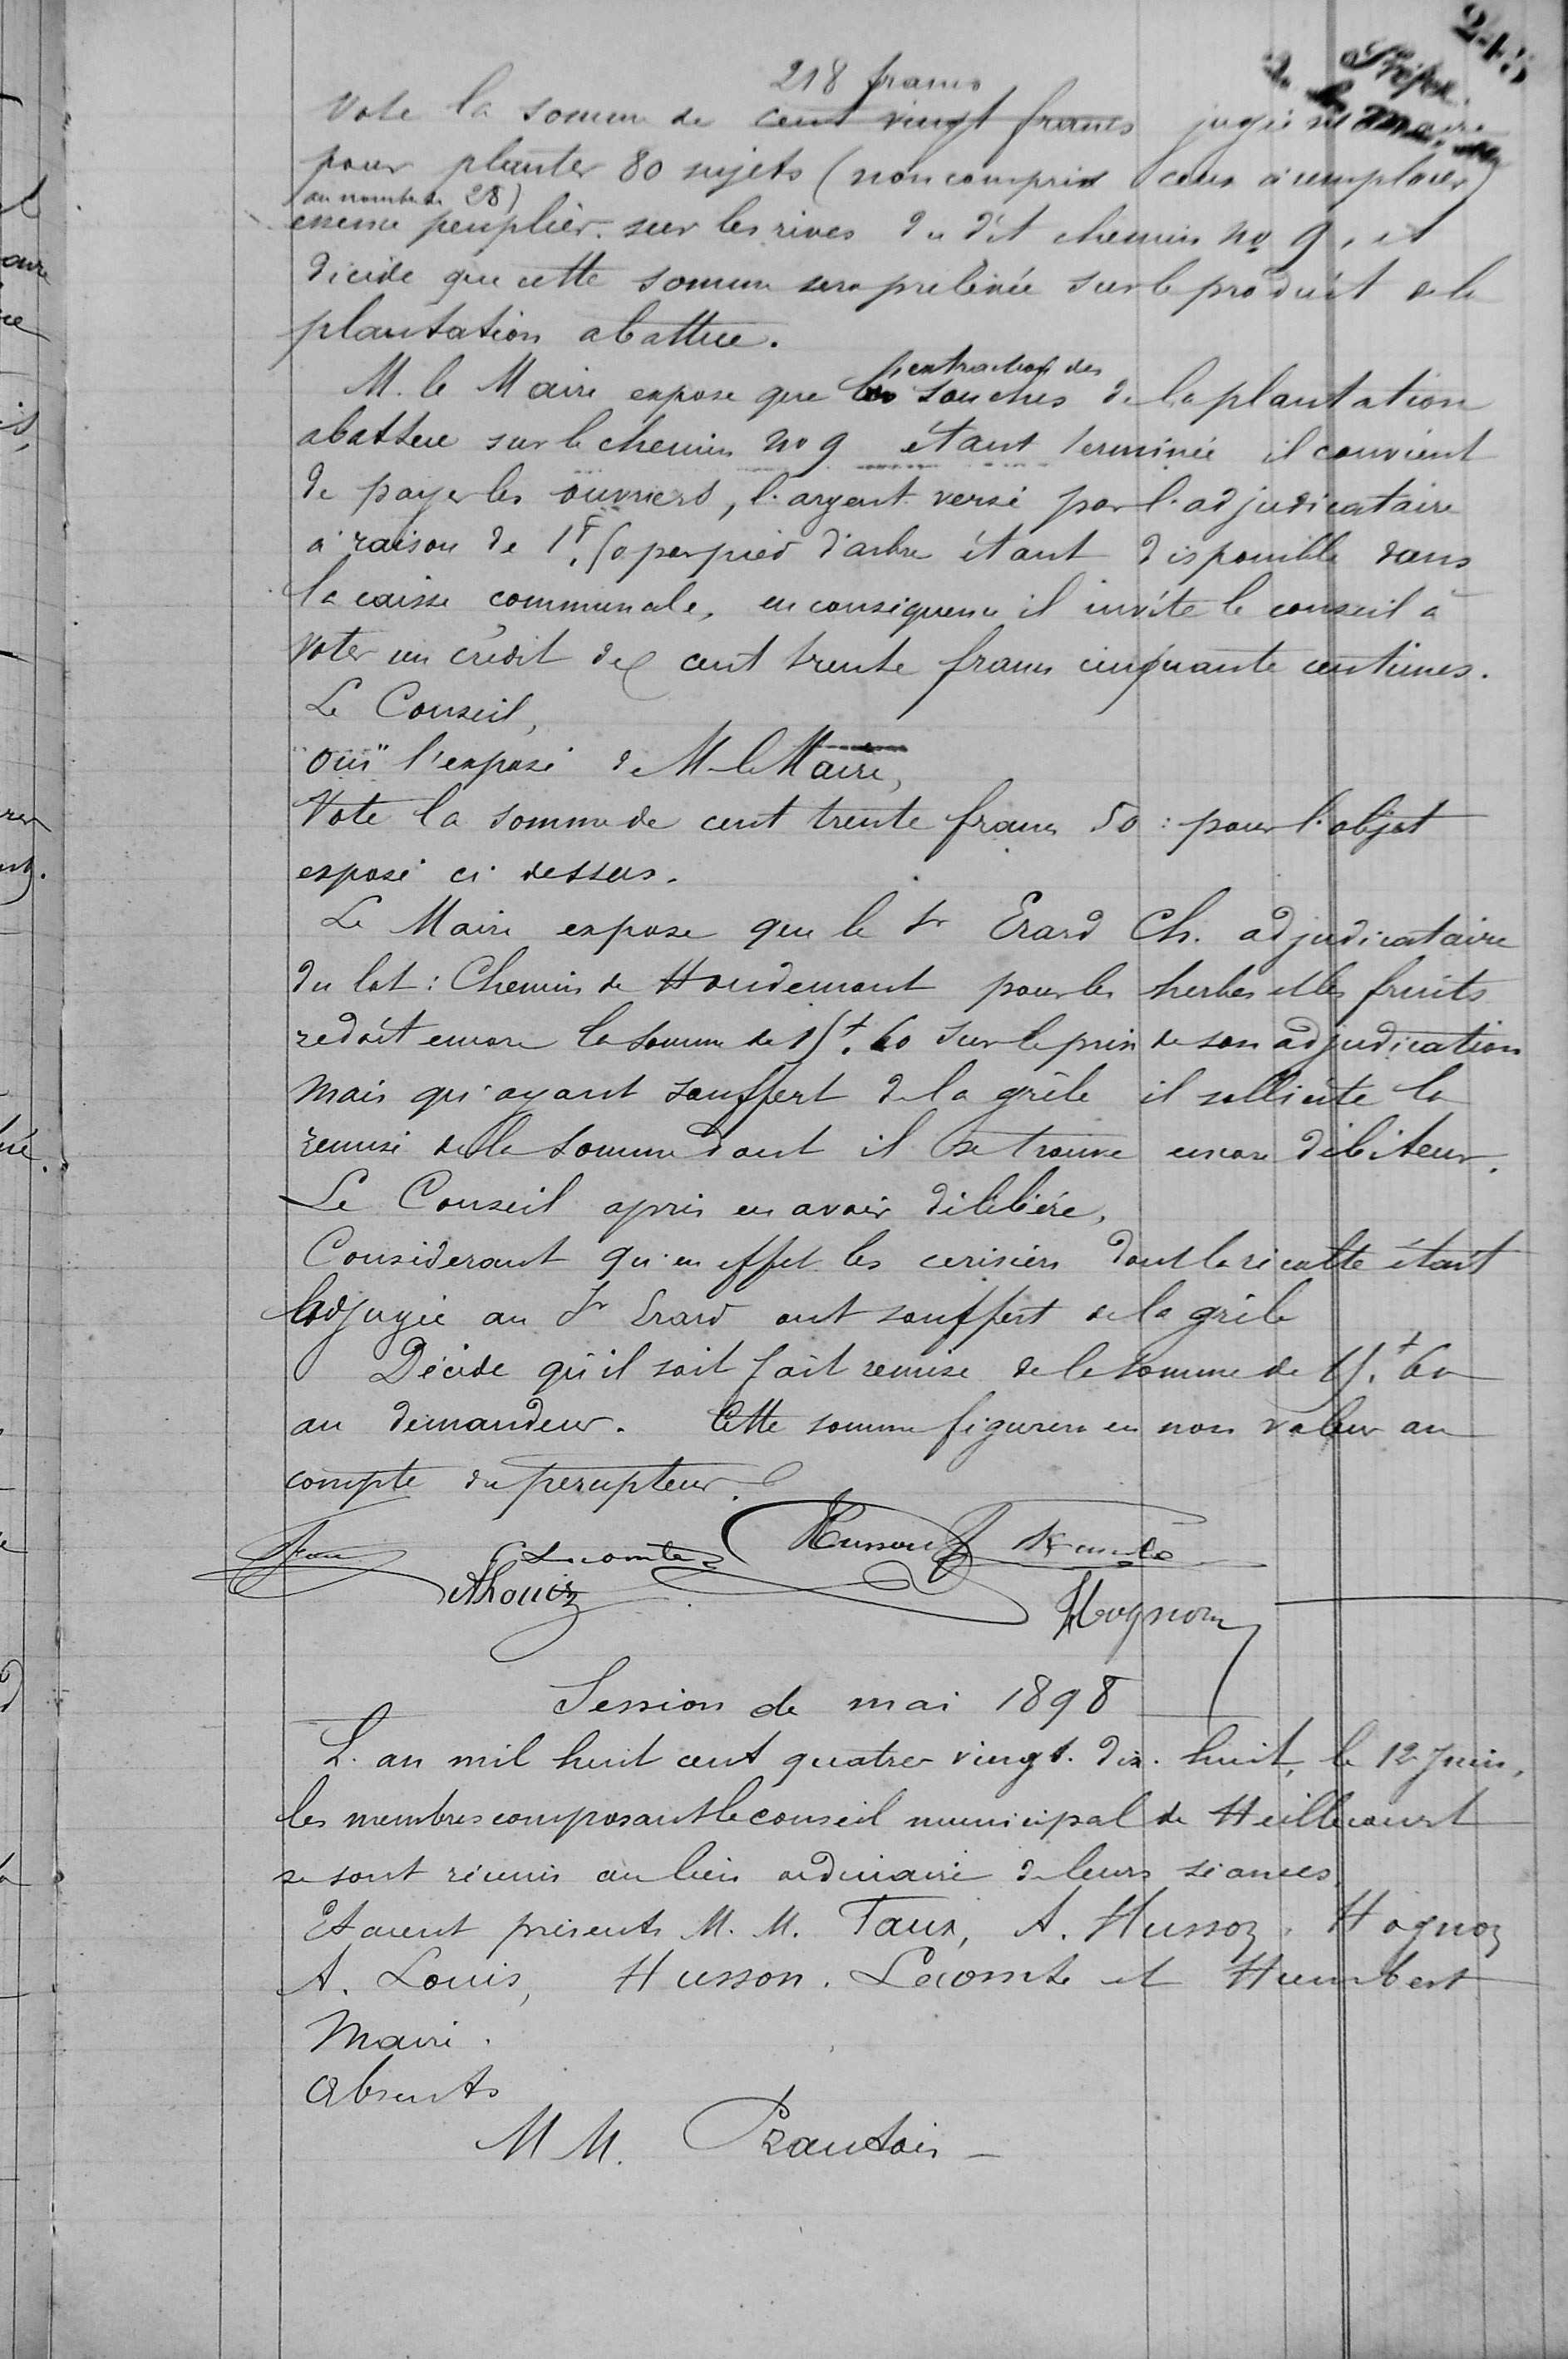 245
218 francs
Vote la somme de cent vingt francs jugée nécessaire
pour planter 80 sujets (non compris ceux à remplacer)
au nombre de 28)
essence peuplier sur les rives du dit chemin no 9, et
décide que cette somme sera prélevée sur le produit de la
plantation abattue.
l'extraction des
M. le Maire expose que les souches de la plantation
abattue sur le chemin no 9 étant terminée il convient
de payer les ouvriers, l'argent versé par l'adjudicataire
à raison de 1f,50 par pied d'arbre étant disponible dans
la caisse communale, en conséquence il invite le conseil à
voter un crédit de cent trente francs cinquante centimes.
Le Conseil,
ouï l'exposé de M. le Maire,
Vote la somme de cent trente francs 50 : pour l'objet
exposé ci dessus.
Le Maire expose que le Sr Erard Ch. adjudicataire
du lot : Chemin de Houdemont pour les herbes et les fruits
redoit encore la somme de 15f.60 sur le prix de son adjudication
mais qu'ayant souffert de la grêle il sollicite la
remise de la somme dont il se trouve encore débiteur.
Le Conseil après en avoir délibéré,
Considérant qu'en effet les cerisiers dont la récolte était
adjugée au Sr Erard ont souffert de la grêle
Décide qu'il soit fait remise de la somme de 15f.60
au demandeur. Cette somme figurera en non valeur au
compte du percepteur.
Lecomte Husson
A Louis
Hognon
Session de mai 1898
L'an mil huit cent quatre vingt. dix. huit, le 12 Juin,
les membres composant le conseil municipal de Heillecourt
se sont réunis au lieu ordinaire de leurs séances.
Etaient présents M. M. Taux, A. Husson, Hognon
A. Louis, Husson. Lecomte et Humbert
Maire.
Absents
M M. Prautois